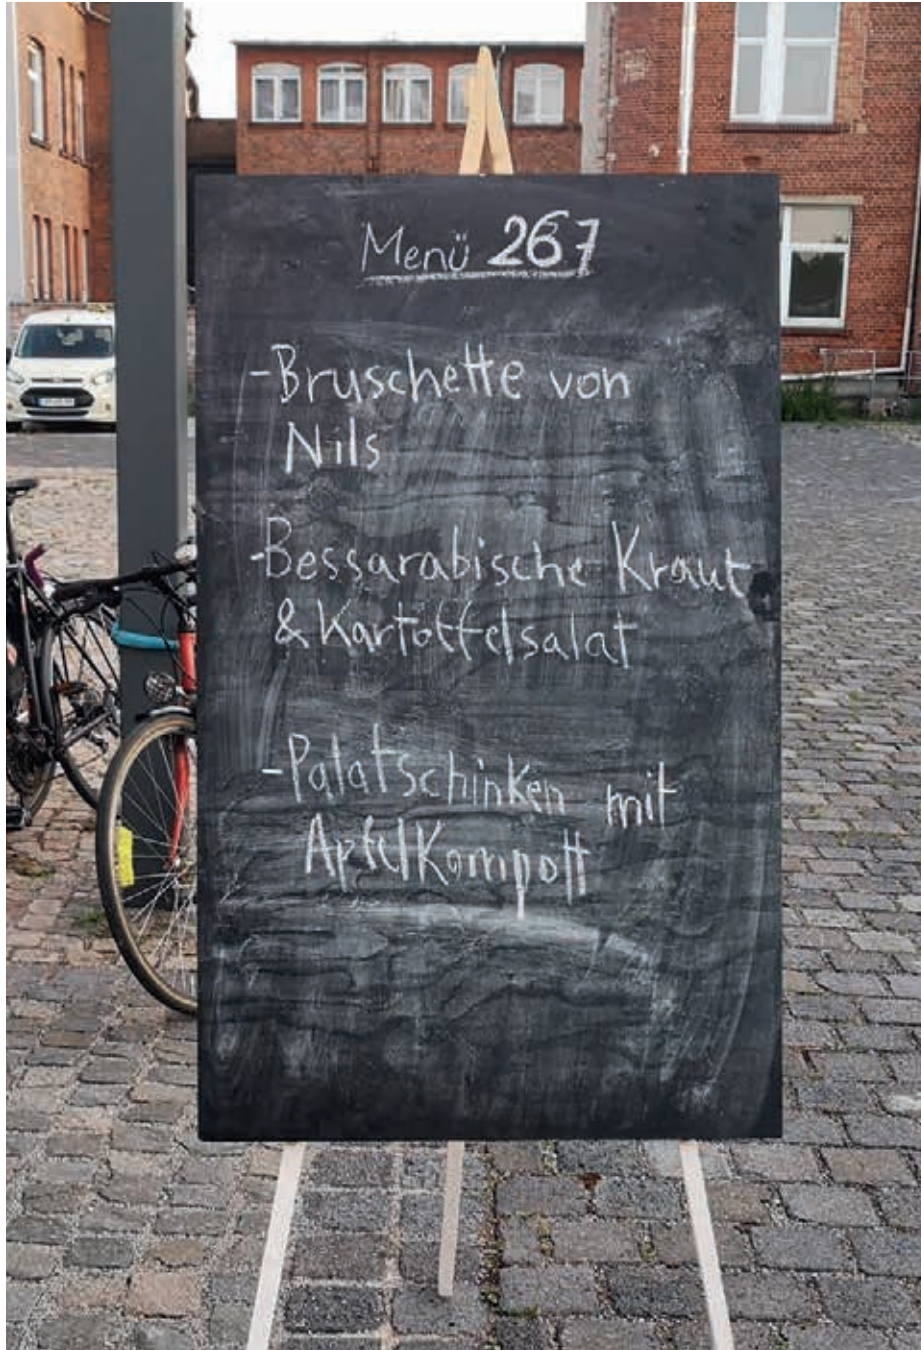 Menü 267
-Bruschette von
Nils
-Bessarabische Kraut
& Kartoffelsalat
-Palatschinken mit
Apfelkompott